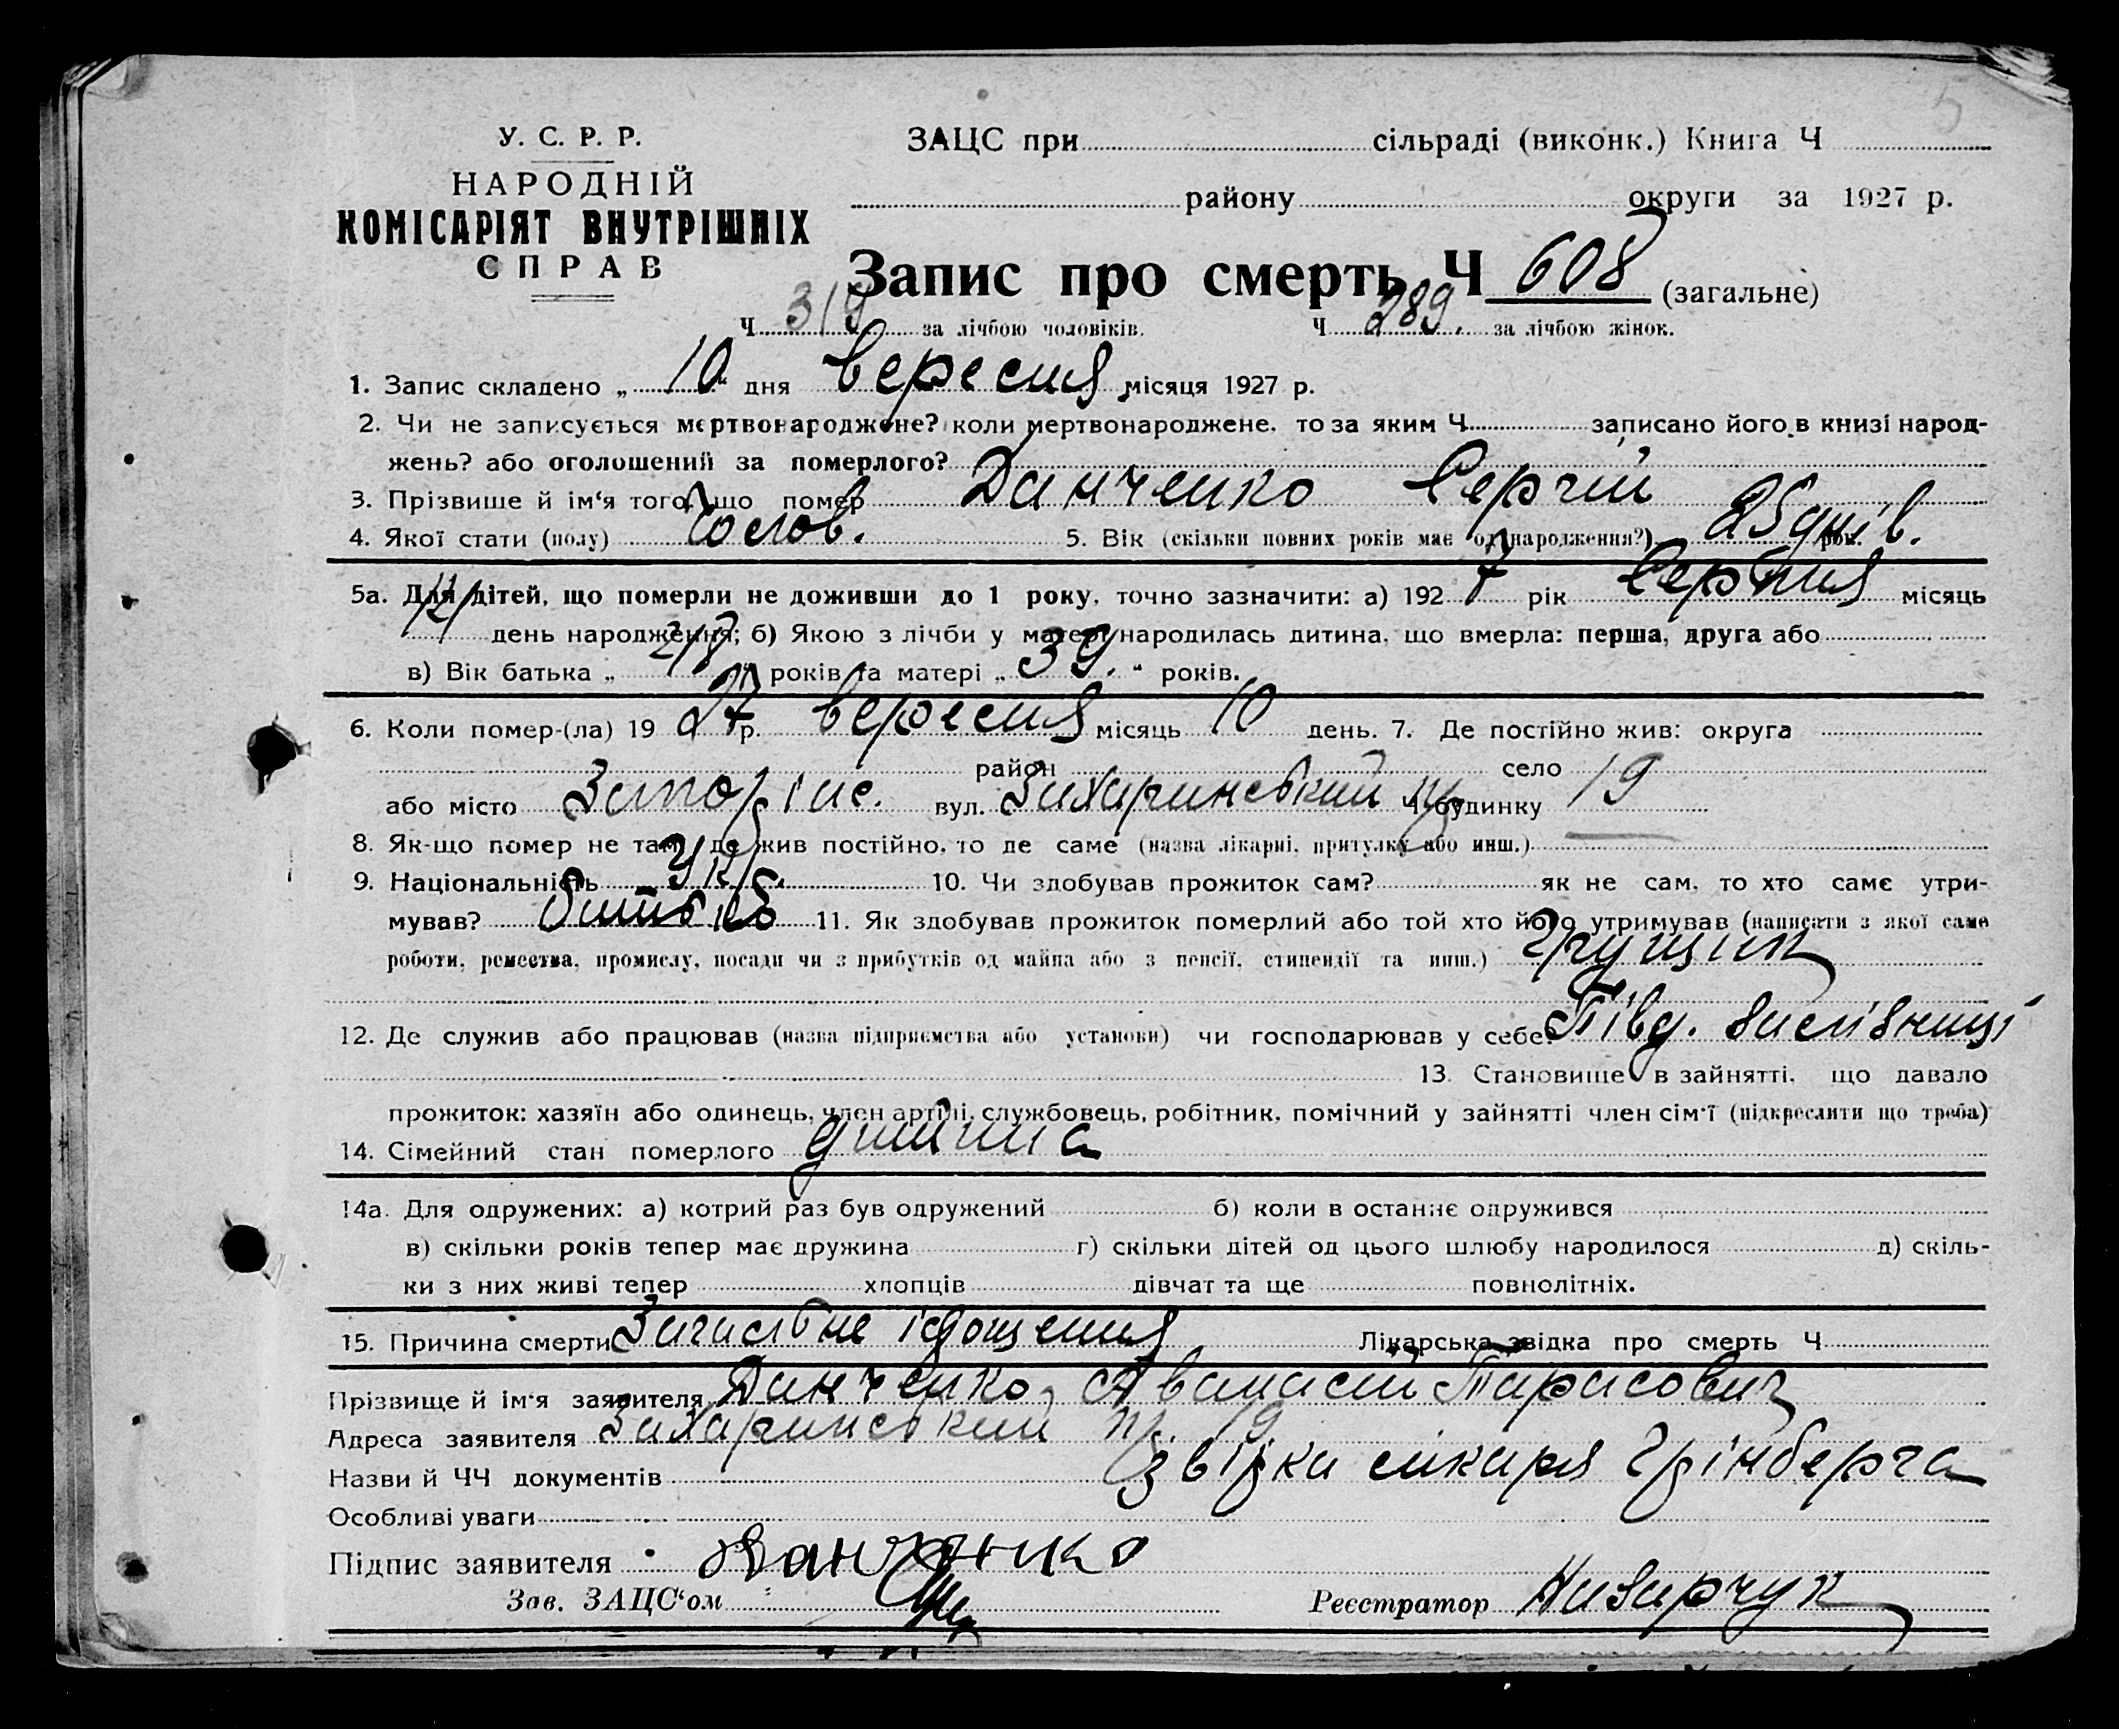 5
У. С. Р. Р.
НАРОДНІЙ
КОМІСАРІЯТ ВНУТРІШНІХ
СПРАВ
ЗАЦС при сільраді (виконк.) Книга Ч
району округи за 1927 р.
Запис про смерть Ч 608 (загальне)
Ч 319 за лічбою чоловіків. Ч 289. за лічбою жінок.
1. Запис складено „ 10 “ дня вересня місяця 1927 р.
2. Чи не записується мертвонароджене? коли мертвонароджене, то за яким Ч записано його в книзі народ-
жень? або оголошений за померлого?
3. Прізвише й ім‘я того, що помер Данченко Сергій
4. Якої стати (полу) Чолов. 5. Вік (скільки повних років має од народження?) 25 днів. рок.
5а. Для дітей, що померли не доживши до 1 року, точно зазначити: а) 1927 рік Серпня місяць
день народження; б) Якою з лічби у матері народилась дитина, що вмерла: перша, друга або
в) Вік батька „ “ років та матері „ 39. “ років.
6. Коли помер-(ла) 19 27 р. вересня місяць 10 день. 7. Де постійно жив: округа
район село
або місто Запоріж. вул. Захаринський пр Ч будинку 19
8. Як-що помер не там, де жив постійно, то де саме (назва лікарні, притулку або инш.)
9. Національність Укр. 10. Чи здобував прожиток сам? як не сам, то хто саме утри-
мував? батько 11. Як здобував прожиток померлий або той хто його утримував (написати з якої саме
роботи, ремества, промислу, посади чи з прибутків од майна або з пенсії, стипендії та инш.) Грущик
12. Де служив або працював (назва підприємства або установи) чи господарював у себе? Півд. Залізниці
13. Становище в зайнятті, що давало
прожиток: хазяїн або одинець, член артілі, службовець, робітник, помічний у зайнятті член сім‘ї (підкреслити що треба)
14. Сімейний стан померлого дитина
14а. Для одружених: а) котрий раз був одружений б) коли в останнє одружився
в) скільки років тепер має дружина г) скільки дітей од цього шлюбу народилося д) скіль-
ки з них живі тепер хлопців дівчат та ще повнолітніх.
15. Причина смерти Загальне Лікарська звідка про смерть Ч
Прізвище й ім‘я заявителя Данченко, Аванасій Тарасович
Адреса заявителя Захаринський пр. 19
Назви й ЧЧ документів звідка лікаря Грінберга
Особливі уваги
Підпис заявителя Данченко
Зав. ЗАЦС‘ом Реєстратор Назарчук